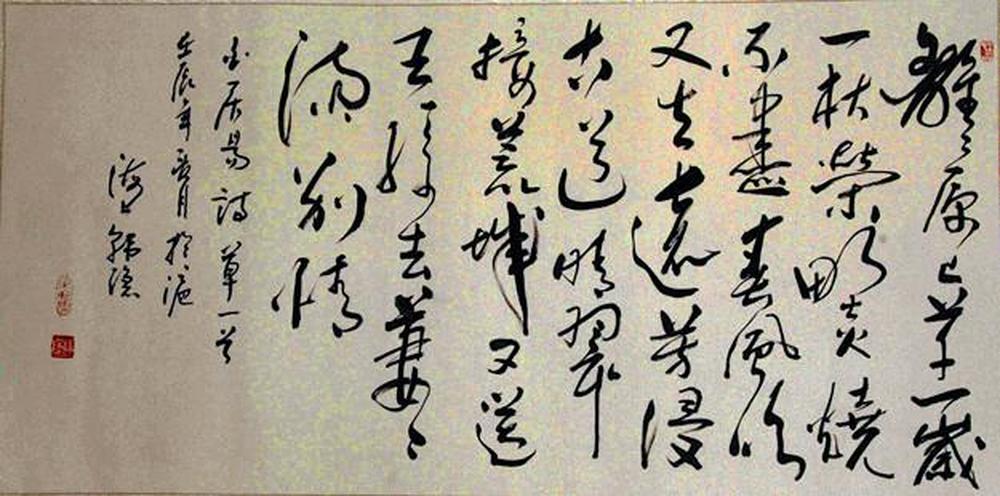 離〻原上草一歲
一枯榮野火燒
不盡春風吹
又生遠芳侵
古道晴翠
接荒城又送
王孫去萋〻
滿別情
白居易詩草一首
壬辰年月於滬